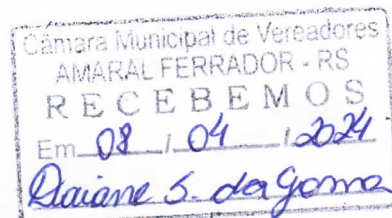 Câmara Municipal de Vereadores
AMARAL FERRADOR - RS
RECEBEMOS
Em 08 / 04 / 2024
Daiane S. da Gama